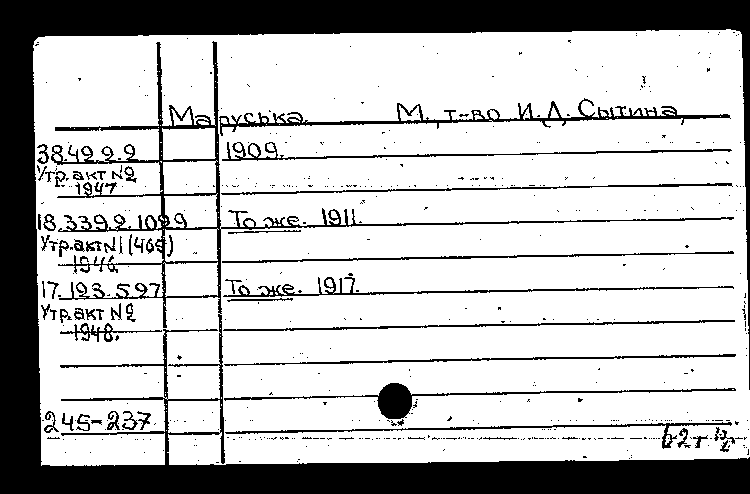 Маруська. М., т-во И.Д. Сытина,
38.49.2.2 1909.
Утр. акт №2
1947
18.339.2.1029 То же. 1911.
Утр. акт №1 (465)
1946.
17.193.597 То же. 1917.
Утр. акт №2
1948.
245-237